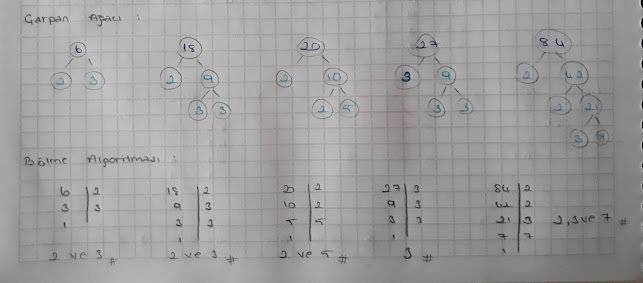 Çarpan Ağacı :
6 18 20 27 84
2 3 2 9 2 10 3 9 2 42
3 3 2 5 3 3 2 21
3
Bölme Algoritması :
6 2 18 2 20 2 27 3 84 2
3 3 9 3 10 2 9 3 42 2
1 3 3 5 5 3 3 21 3 2,3 ve 7 #
1 1 1 7 7
2 ve 3 # 2 ve 3 # 2 ve 5 # 3 # 1